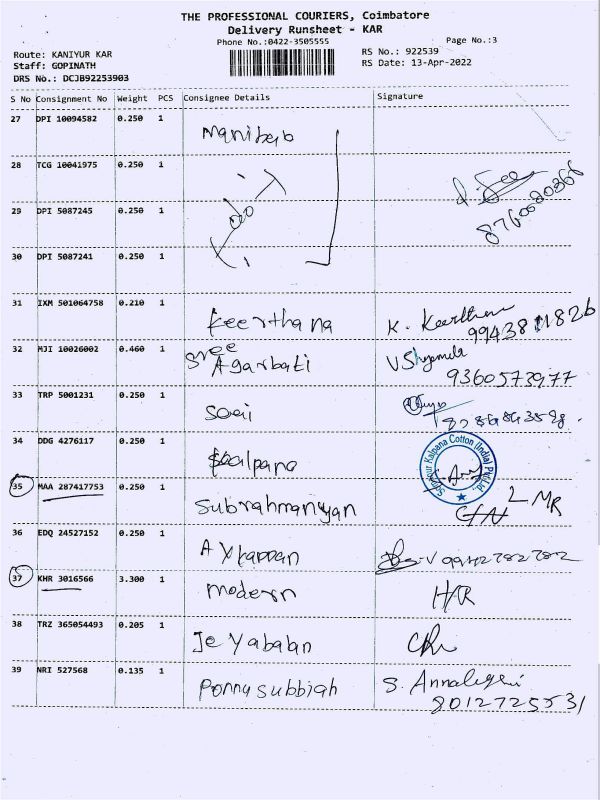 THE PROFESSIONAL COURIERS, Coimbatore
Delivery Runsheet - KAR
Phone No.:0422-3505555
Page No.:3
Route: KANIYUR KAR
RS No.: 922539
Staff: GOPINATH
RS Date: 13-Apr-2022
DRS No.: DCJB92253903
S No Consignment No Weight PCS Consignee Details Signature
27 DPI 10094582 0.250 1
28 TCG 10041975 0.250 1
29 DPI 5087245 0.250 1 do
8760020366
30 DPI 5087241 0.250 1
31 IXM 501064758 0.210 1 Keerthana K. Keerthana
32 MJI 10026002 0.460 1 Sree Agarbati V Shyamala
9360573977
33 TRP 5001231 0.250 1
34 DDG 4276117 0.250 1 Kalpana
Kalpana Cotton (India) Pvt Ltd
35 MAA 287417753 0.250 1 Subrahmaniyan
36 EDQ 24527152 0.250 1 Ayyappan 9942782782
37 KHR 3016566 3.300 1 modern
38 TRZ 365054493 0.205 1 Jeyabalan
39 NRI 527568 0.135 1 Ponnusubbiah S.